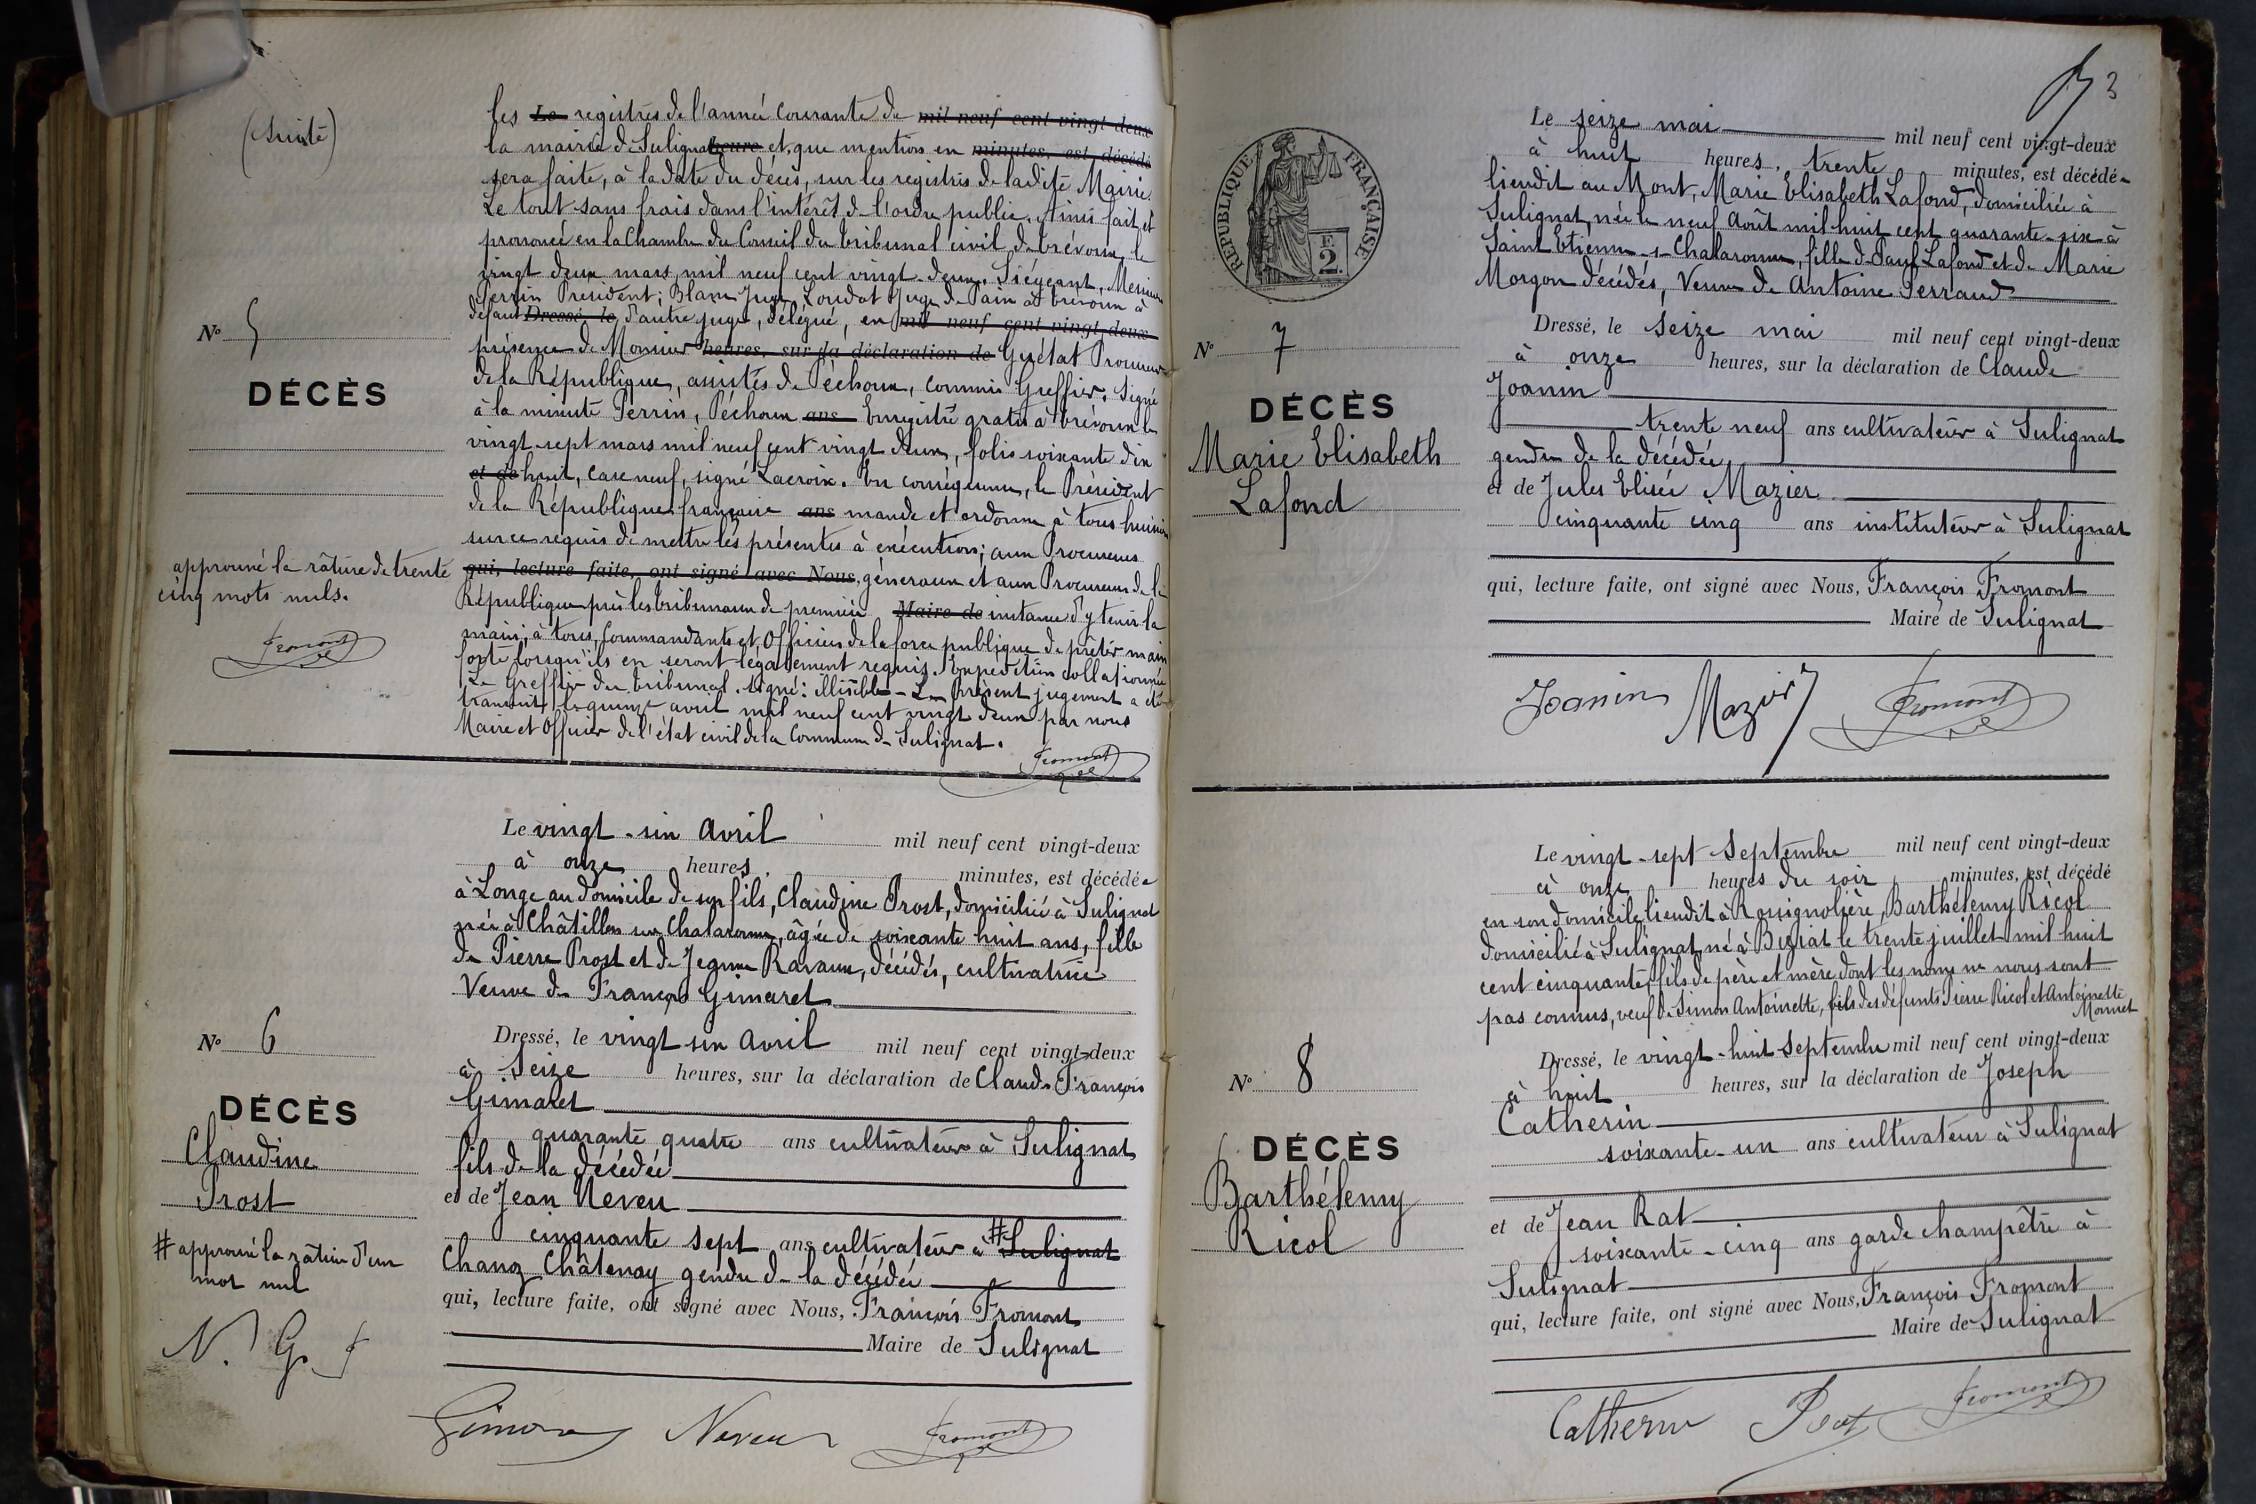 (suite)
les Le registres de l'année courante de mil neuf cent vingt deux
la mairie de Sulignat heure et que mention en minutes, est décédé
sera faite, à la date du décès, sur les registres de ladite Mairie.
Le tout sans frais dans l'intérêt de l'ordre public. Ainsi fait et
prononcé en la Chambre du Conseil du tribunal civil de trévoux, le
vingt deux mars mil neuf cent vingt-deux. Siégeant, Messieurs
Perrin Président; Blanc Juge, Loudot Juge de Paix à trévoux à
défaut Dressé, le d'autre juge, délégué, en mil neuf cent vingt-deux
présence de Monsieur heures, sur la déclaration de Guétat Procureur
de la République, assistés de Péchoux, commis Greffier. Signé
à la minute Perrin, Péchoux ans Enregistré gratis à trévoux le
vingt sept mars mil neuf cent vingt deux, folio soixante dix
et de huit, case neuf, signé Lacroix. En conséquence, le Président
de la République française ans mande et ordonne à tous huissiers
sur ce requis de mettre les présentes à exécution; aux Procureurs
qui, lecture faite, ont signé avec Nous, généraux et aux Procureurs de la
République près les tribunaux de première Maire de instance d'y tenir la
main; à tous Commandants et Officiers de la force publique de prêter main
forte lorsqu'ils en seront légalement requis. Expédition collationnée
Le Greffier du tribunal. signé: illisible - Le présent jugement a été
transcrit le quinze avril mil neuf cent vingt deux par nous
Maire et Officier de l'état civil de la Commune de Sulignat.
Fromont
N° 5
DÉCÈS
approuvé la râture de trente
cinq mots nuls.
Fromont
Le vingt-six avril mil neuf cent vingt-deux
à onze heures, minutes, est décédée
à Longe au domicile de son fils, Claudine Prost, domiciliée à Sulignat
née à Châtillon sur Chalaronne, âgée de soixante huit ans, fille
de Pierre Prost et de Jeanne Ravaux, décédés, cultivatrice
Veuve de François Gimaret
N° 6
DÉCÈS
Claudine
Prost
# approuvé la râture d'un
mot nul
N. G. f
Dressé, le vingt six avril mil neuf cent vingt-deux
à Seize heures, sur la déclaration de Claude François
Gimaret
quarante quatre ans cultivateur à Sulignat
fils de la décédée
et de Jean Neveu
cinquante sept ans cultivateur à # Sulignat
Chanoz Châtenay gendre de la décédée
qui, lecture faite, ont signé avec Nous, François Fromont
Maire de Sulignat
Neveu Fromont
3
RÉPUBLIQUE FRANÇAISE
F.
2.
Le seize mai mil neuf cent vingt-deux
à huit heures, trente minutes, est décédée
lieudit au Mont, Marie Elisabeth Lafond, domiciliée à
Sulignat, née le neuf Août mil huit cent quarante-six à
Saint Etienne-s-Chalaronne, fille de Paul Lafond et de Marie
Morgon décédés, Veuve de Antoine Perraud
N° 7
DÉCÈS
Marie Elisabeth
Lafond
Dressé, le seize mai mil neuf cent vingt-deux
à onze heures, sur la déclaration de Claude
Joanin
trente neuf ans cultivateur à Sulignat
gendre de la décédée
et de Jules Elisée Mazier
cinquante cinq ans instituteur à Sulignat
qui, lecture faite, ont signé avec Nous, François Fromont
Maire de Sulignat
Joanin Mazier Fromont
Le vingt-sept Septembre mil neuf cent vingt-deux
à onze heures du soir minutes, est décédé
en son domicile lieudit à Rossignolière, Barthélemy Ricol
domicilié à Sulignat, né à Buziat le trente juillet mil huit
cent cinquante, fils de père et mère dont les noms ne nous sont
pas connus, veuf de Simon Antoinette, fils des défunts Pierre Ricol et Antoinette
Monnet
N° 8
DÉCÈS
Barthélemy
Ricol
Dressé, le vingt-huit Septembre mil neuf cent vingt-deux
à huit heures, sur la déclaration de Joseph
Catherin
soixante-un ans cultivateur à Sulignat
et de Jean Rat
soixante-cinq ans garde champêtre à
Sulignat
qui, lecture faite, ont signé avec Nous, François Fromont
Maire de Sulignat
Catherin Rat Fromont